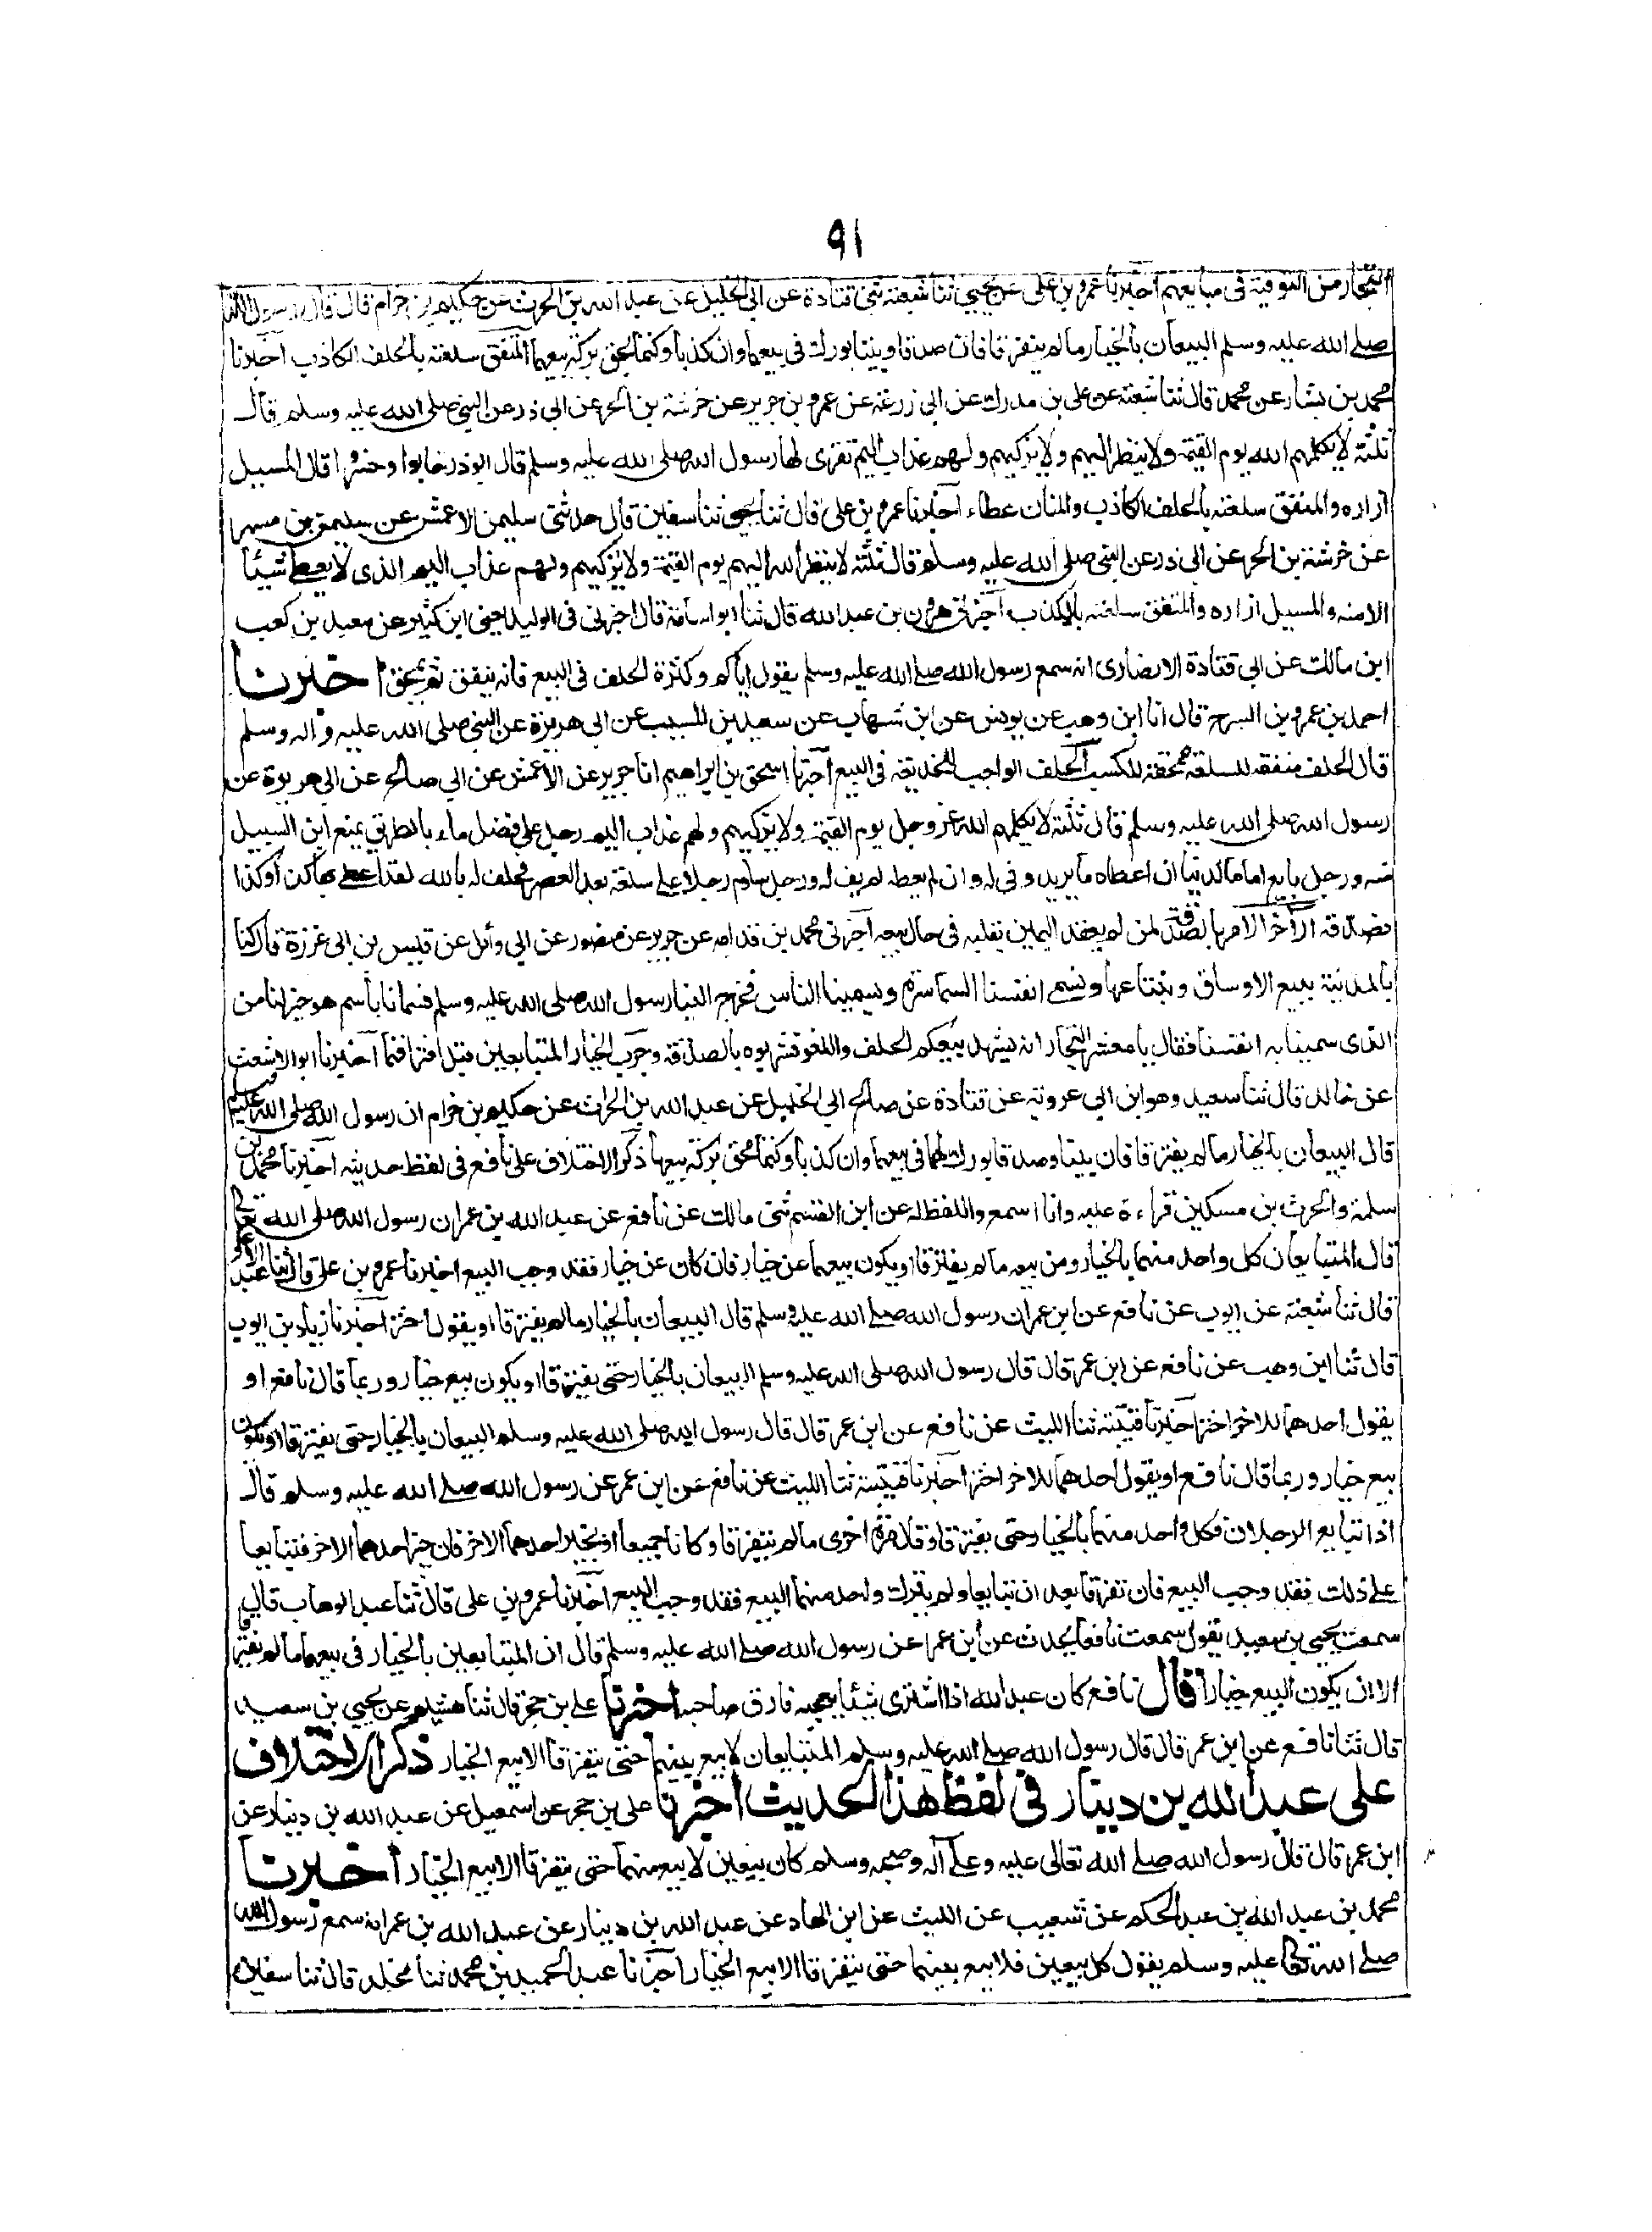 ٩١
التجار من التوقية في مبايعهم اخبرنا عمرو بن على عن يحيى ثنا شعبة ثنى قتادة عن ابى الخليل عن عبد الله بن الحرث عن حكيم بن حزام قال قال رسول الله
صلى الله عليه وسلم البيعان بالخيار ما لم يتفرقا فان صدقا وبينا بورك في بيعهما وان كذبا وكتما محق بركة بيعهما المنفق سلعته بالحلف الكاذب اخبرنا
محمد بن بشار عن محمد قال ثنا شعبة عن على بن مدرك عن ابى زرعة عن عمرو بن جرير عن خرشة بن الحر عن ابى ذر عن النبي صلى الله عليه وسلم قال
ثلثة لا يكلمهم الله يوم القيمة ولا ينظر اليهم ولا يزكيهم ولهم عذاب اليم فقرأها رسول الله صلى الله عليه وسلم قال ابوذر خابوا وخسروا قال المسبل
ازاره والمنفق سلعته بالحلف الكاذب والمنان عطاء اخبرنا عمرو بن على قال ثنا يحيى ثنا سفين قال حدثنى سليمن الاعمش عن سليمن بن مسهر
عن خرشة بن الحر عن ابى ذر عن النبي صلى الله عليه وسلم قال ثلثة لا ينظر الله اليهم يوم القيمة ولا يزكيهم ولهم عذاب اليم الذى لا يعطى شيئا
الا منه والمسبل ازاره والمنفق سلعته بالكذب اخبرنى هرون بن عبد الله قال ثنا ابو اسامة قال اخبرنى الوليد يعنى ابن كثير عن معبد بن كعب
ابن مالك عن ابى قتادة الانصارى انه سمع رسول الله صلى الله عليه وسلم يقول اياكم وكثرة الحلف في البيع فانه ينفق ثم يمحق اخبرنا
احمد بن عمرو بن السرح قال انا ابن وهب عن يونس عن ابن شهاب عن سعيد بن المسيب عن ابى هريرة عن النبي صلى الله عليه وآله وسلم
قال الحلف منفقة للسلعة ممحقة للكسب الحلف الواجب للخديعة في البيع اخبرنا اسحق بن ابراهيم انا جرير عن الاعمش عن ابي صالح عن ابي هريرة عن
رسول الله صلى الله عليه وسلم قال ثلثة لا يكلمهم الله عز وجل يوم القيمة ولا يزكيهم ولهم عذاب اليم رجل على فضل ماء بالطريق يمنع ابن السبيل
منه ورجل بايع اماما لدنيا ان اعطاه ما يريد وفى له وان لم يعطه لم يف له ورجل ساوم رجلا على سلعة بعد العصر فحلف له بالله لقد اعطى بها كذا وكذا
فصدقه الآخر الامر بالصدقة لمن لم يعقد اليمين بقلبه في حال بيعه اخبرنى محمد بن قدامة عن جرير عن منصور عن ابي وائل عن قيس بن ابى غرزة قال كنا
بالمدينة نبيع الاوساق ونبتاعها ونسمى انفسنا السماسرة ويسمينا الناس فخرج الينا رسول الله صلى الله عليه وسلم فسمانا باسم هو خير لنا من
الذى سمينا به انفسنا فقال يا معشر التجار انه يشهد بيعكم الحلف واللغو فشوبوه بالصدقة وجوب الخيار للمتبايعين قبل افتراقهما اخبرنا ابو الاشعث
عن خالد قال ثنا سعيد وهو ابن ابي عروبة عن قتادة عن صالح ابي الخليل عن عبد الله بن الحرث عن حكيم بن حزام ان رسول الله صلى الله عليه وسلم
قال البيعان بالخيار ما لم يفترقا فان بينا وصدقا بورك لهما في بيعهما وان كذبا وكتما محق بركة بيعهما ذكر الاختلاف على نافع في لفظ حديثه اخبرنا محمد بن
سلمة والحرث بن مسكين قراءة عليه وانا اسمع واللفظ له عن ابن القسم ثنى مالك عن نافع عن عبد الله بن عمر ان رسول الله صلى الله تعالى
قال المتبايعان كل واحد منهما بالخيار من بيعه ما لم يفترقا او يكون بيعهما عن خيار فان كان عن خيار فقد وجب البيع اخبرنا عمرو بن على قال ثنا عبد الاعلى
قال ثنا شعبة عن ايوب عن نافع عن ابن عمر ان رسول الله صلى الله عليه وسلم قال البيعان بالخيار ما لم يفترقا او يقول اختر اخبرنا زياد بن ايوب
قال ثنا ابن وهب عن نافع عن ابن عمر قال قال رسول الله صلى الله عليه وسلم البيعان بالخيار حتى يفترقا او يكون بيع خيار وربما قال نافع او
يقول احدهما للاخر اختر اخبرنا قتيبة ثنا الليث عن نافع عن ابن عمر قال قال رسول الله صلى الله عليه وسلم البيعان بالخيار حتى يفترقا او يكون
بيع خيار وربما قال نافع او يقول احدهما للاخر اختر اخبرنا قتيبة ثنا الليث عن نافع عن ابن عمر عن رسول الله صلى الله عليه وسلم قال
اذا تبايع الرجلان فكل واحد منهما بالخيار حتى يفترقا وقال مرة اخرى ما لم يتفرقا وكانا جميعا او يخير احدهما الاخر فان خير احدهما الاخر فتبايعا
على ذلك فقد وجب البيع فان تفرقا بعد ان تبايعا ولم يترك واحد منهما البيع فقد وجب البيع اخبرنا عمرو بن على قال ثنا عبد الوهاب قال
سمعت يحيى بن سعيد يقول سمعت نافعا يحدث عن ابن عمر عن رسول الله صلى الله عليه وسلم قال ان المتبايعين بالخيار في بيعهما ما لم يفترقا
الا ان يكون البيع خيارا قال نافع كان عبد الله اذا اشترى شيئا يعجبه فارق صاحبه اخبرنا على بن حجر قال ثنا هشيم عن يحيى بن سعيد
قال ثنا نافع عن ابن عمر قال قال رسول الله صلى الله عليه وسلم المتبايعان لا بيع بينهما حتى يتفرقا الا بيع الخيار ذكر الاختلاف
على عبد الله بن دينار في لفظ هذا الحديث اخبرنا على بن حجر عن اسمعيل عن عبد الله بن دينار عن
ابن عمر قال قال رسول الله صلى الله تعالى عليه وعلى آله وصحبه وسلم كل بيعين لا بيع بينهما حتى يتفرقا الا بيع الخيار اخبرنا
محمد بن عبد الله بن عبد الحكم عن شعيب عن الليث عن ابن الهاد عن عبد الله بن دينار عن عبد الله بن عمر انه سمع رسول الله
صلى الله تعالى عليه وسلم يقول كل بيعين فلا بيع بينهما حتى يتفرقا الا بيع الخيار اخبرنا عبد الحميد بن محمد ثنا مخلد قال ثنا سفين